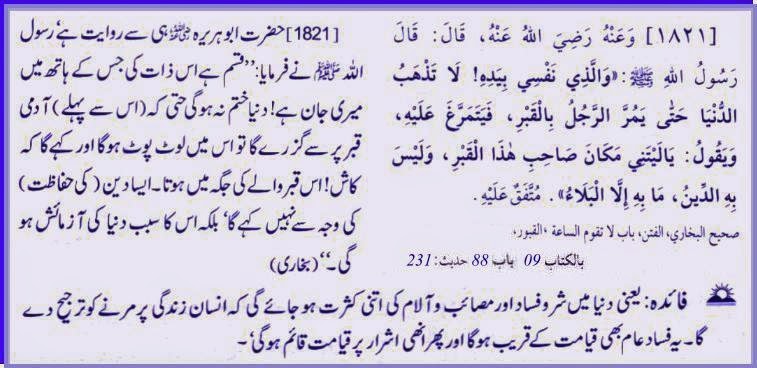 [١٨٢١] وَعَنْهُ رَضِيَ اللهُ عَنْهُ، قَالَ: قَالَ
رَسُولُ اللهِ ﷺ: «وَالَّذِي نَفْسِي بِيَدِهِ! لَا تَذْهَبُ
الدُّنْيَا حَتَّى يَمُرَّ الرَّجُلُ بِالْقَبْرِ، فَيَتَمَرَّغَ عَلَيْهِ،
وَيَقُولُ: يَالَيْتَنِي مَكَانَ صَاحِبِ هٰذَا الْقَبْرِ، وَلَيْسَ
بِهِ الدِّينُ، مَا بِهِ إِلَّا الْبَلَاءُ». مُتَّفَقٌ عَلَيْهِ.
صحيح البخاري، الفتن، باب لا تقوم الساعة، القبور،
بالكتاب 09 باب 88 حديث: 231
[1821] حضرت ابو ہریرہ ﷜ ہی سے روایت ہے، رسول
اللہ ﷺ نے فرمایا: ’’قسم ہے اس ذات کی جس کے ہاتھ میں
میری جان ہے! دنیا ختم نہ ہوگی حتی کہ (اس سے پہلے) آدمی
قبر پر سے گزرے گا تو اس میں لوٹ پوٹ ہوگا اور کہے گا کہ
کاش! اس قبر والے کی جگہ میں ہوتا۔ ایسا دین (کی حفاظت)
کی وجہ سے نہیں کہے گا، بلکہ اس کا سبب دنیا کی آزمائش ہو
گی۔‘‘ (بخاری)
فائدہ: یعنی دنیا میں شر و فساد اور مصائب و آلام کی اتنی کثرت ہو جائے گی کہ انسان زندگی پر مرنے کو ترجیح دے
گا۔ یہ فساد عام بھی قیامت کے قریب ہوگا اور پھر انھی اشرار پر قیامت قائم ہوگی‘۔